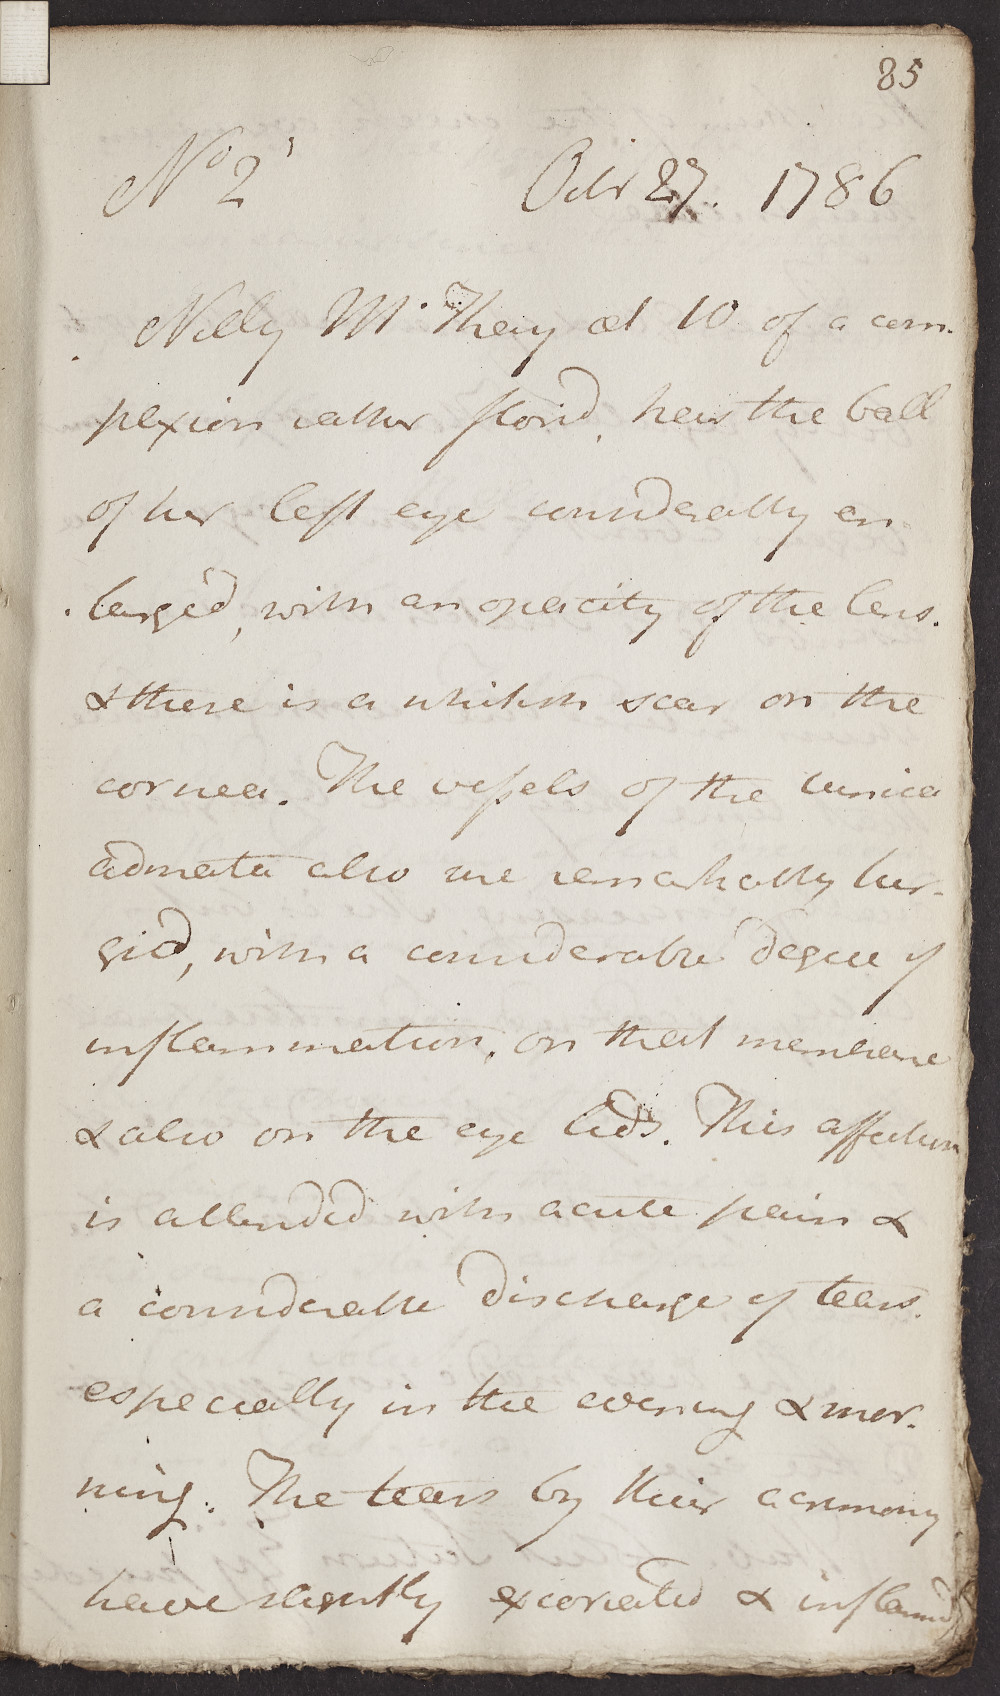 85
No 2
Octr 27. 1786
Nelly Mc Theny æt 10 of a com-
plexion rather florid, has the ball
of her left eye considerably en
larg'd, with an opacity of the lens.
& there is a whitish scar on the
cornea. The vessels of the tunica
adnata also are remarkably tur-
gid, with a considerable degree of
inflammation, on that membrane
& also on the eye lids. This affection
is attended with acute pain &
a considerable discharge of tears.
especially in the evening & mor-
ning. The tears by their acrimony
have slightly excoriated & inflamed